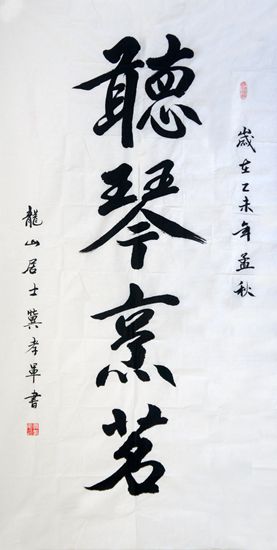 歲在乙未年孟秋
聽琴烹茗
龍山居士冀孝單書